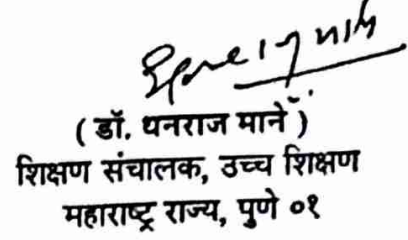 ( डॉ. धनराज माने )
शिक्षण संचालक, उच्च शिक्षण
महाराष्ट्र राज्य, पुणे ०१